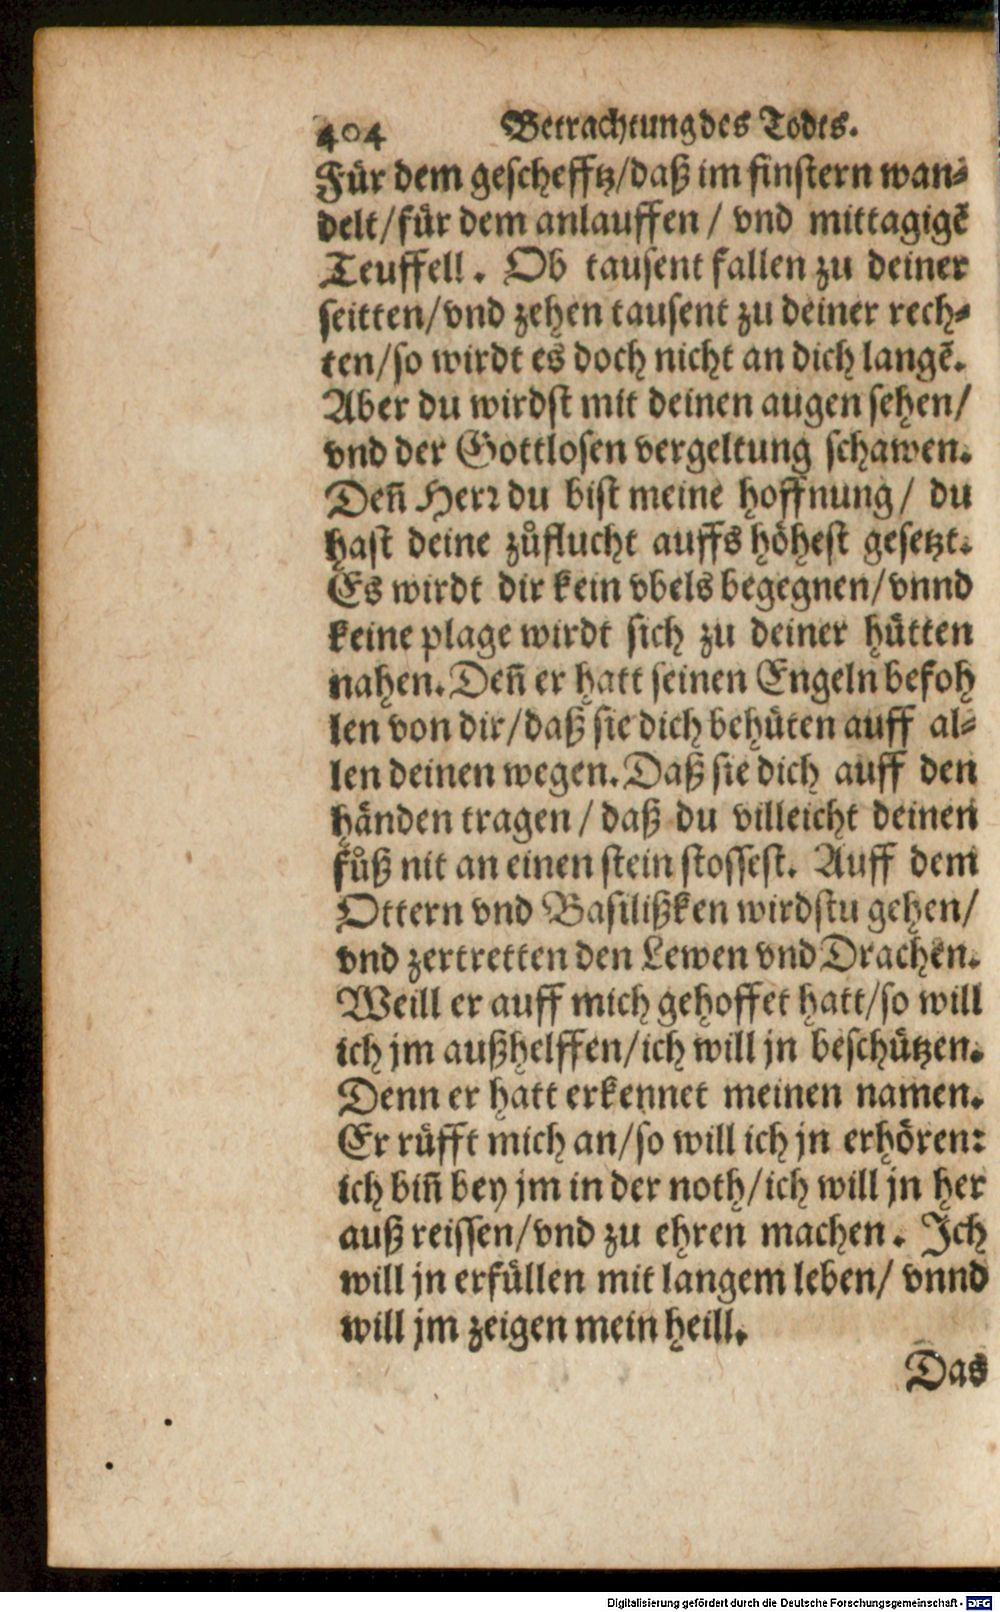 404 Betrachtung des Todts.
Für dem geschefftz/daß im finstern wan-
delt/für dem anlauffen / vnd mittagigẽ
Teuffell. Ob tausent fallen zu deiner
seitten/vnd zehen tausent zu deiner rech-
ten/so wirdt es doch nicht an dich langẽ.
Aber du wirdst mit deinen augen sehen/
vnd der Gottlosen vergeltung schawen.
Deñ Herꝛ du bist meine hoffnung/ du
hast deine zůflucht auffs höhest gesetzt.
Es wirdt dir kein vbels begegnen/vnnd
keine plage wirdt sich zu deiner hütten
nahen. Deñ er hatt seinen Engeln befoh
len von dir/daß sie dich behüten auff al-
len deinen wegen. Daß sie dich auff den
händen tragen / daß du villeicht deinen
fůß nit an einen stein stossest. Auff dem
Ottern vnd Basilißken wirdstu gehen/
vnd zertretten den Lewen vnd Drachen.
Weill er auff mich gehoffet hatt/so will
ich jm außhelffen/ich will jn beschützen.
Denn er hatt erkennet meinen namen.
Er rüfft mich an/so will ich jn erhören:
ich biñ bey jm in der noth/ich will jn her
auß reissen/vnd zu ehren machen. Ich
will jn erfüllen mit langem leben/ vnnd
will jm zeigen mein heill.
Das
Digitalisierung gefördert durch die Deutsche Forschungsgemeinschaft - DFG